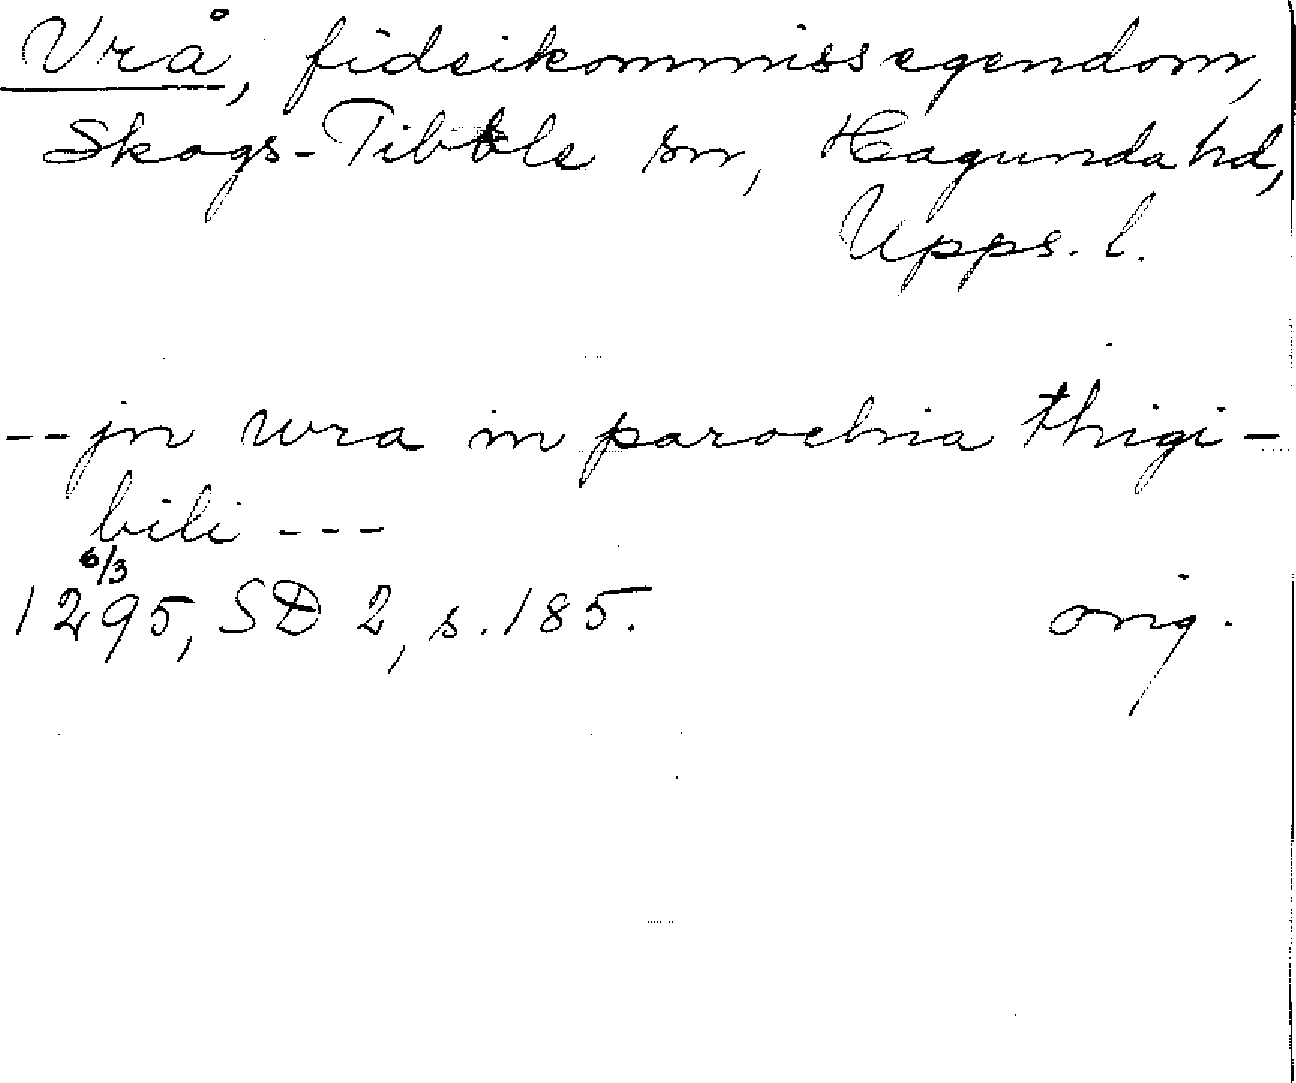 Vrå, fideikommissegendom,
Skogs-Tibble sn, Hagunda hd,
Upps. l.
--jn wra in parochia thigi-
bili ---
6/3
1295, SD 2, s. 185. orig.